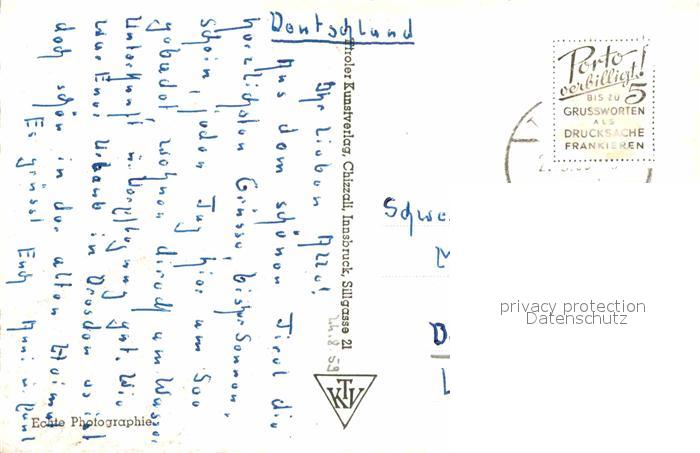 Deutschland
Ihr lieben Alle!
Aus dem schönen Tirol die
herzlichsten Grüsse, bisher Sonnen-
schein, jeden Tag hier am See
gebadet, wohnen direkt am Wasser
Unterkunft u. Verpflegung gut. Wie
war Euer Urlaub in Dresden es ist
doch schön in der alten Heimat
Es grüsst Euch
Tiroler Kunstverlag, Chizzali, Innsbruck, Sillgasse 21
24.8.59
KTV
Echte Photographie
Porto
verbilligt!
BIS ZU 5
GRUSSWORTEN
ALS
DRUCKSACHE
FRANKIEREN
privacy protection
Datenschutz